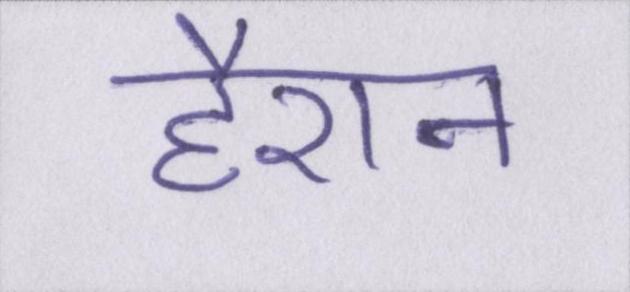 हैरान